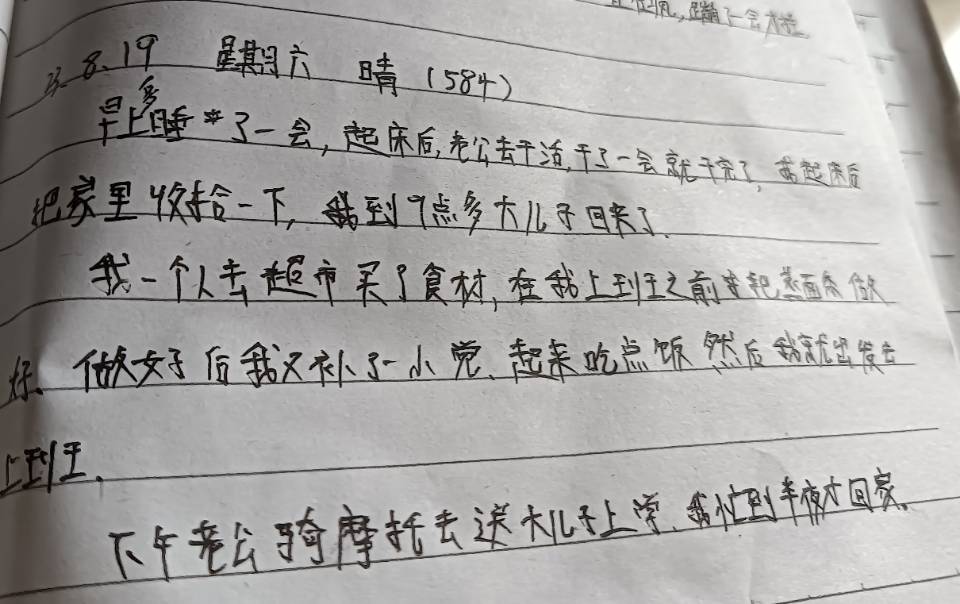 8.19 星期六 晴 (584)
早上多睡*了一会,起床后,老公去干活,干了一会就干完了,我起床后
把家里收拾一下,我到9点多大儿子回来了.
我一个人去超市买了食材,在我上到王之前我把蒸面条做
好、做好后我又补了一小觉、起来吃点饭、然后我就出发去
上到王.
下午老公骑摩托去送大儿子上学.我忙到半夜才回家.